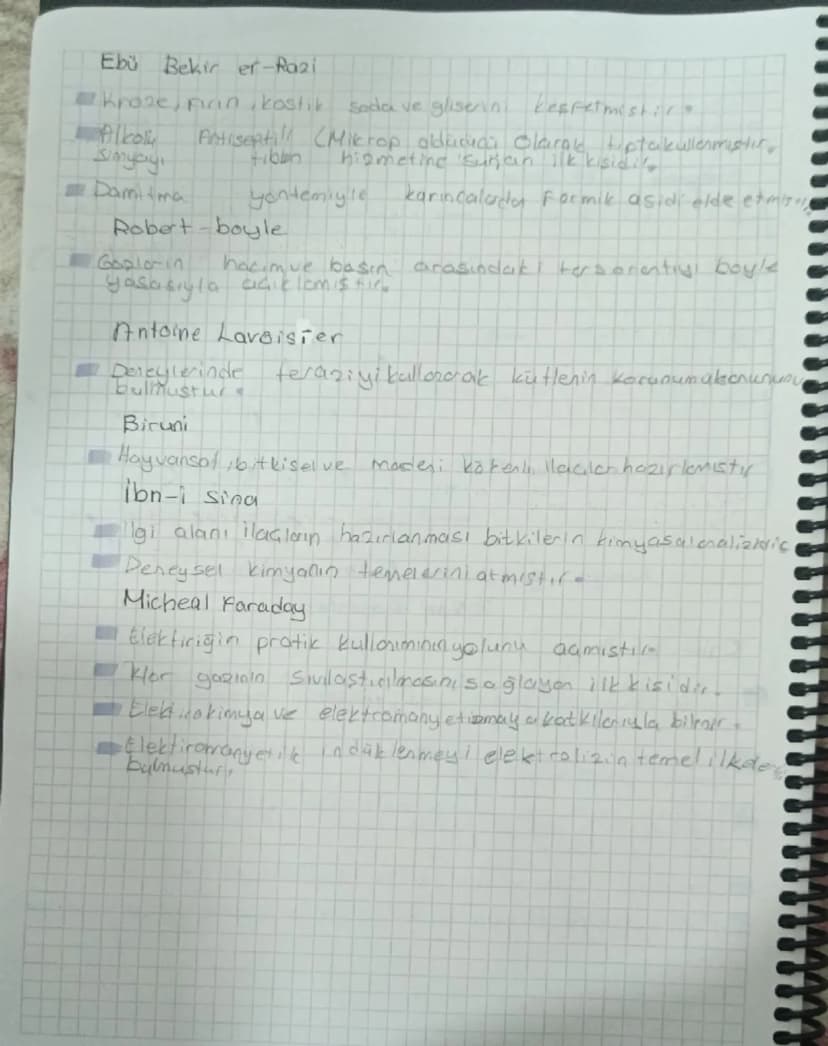 Ebû Bekir er-Razi
Kroze, fırın, kostik soda ve gliserini keşfetmiştir.
Alkolü Antiseptik (Mikrop öldürücü olarak tıpta kullanmıştır.
Simyayı tıbbın hizmetine sunan ilk kişidir.
Damıtma yöntemiyle karıncalardan Formik asidi elde etmiş
Robert-boyle
Gazların hacim ve basın arasındaki ters orantıyı boyle
yasasıyla açıklamıştır.
Antoine Lavoisier
Deneylerinde teraziyi kullanarak kütlenin korunumu kanununu
bulmuştur.
Biruni
Hayvansal, bitkisel ve madeni kökenli ilaçlar hazırlamıştır
İbn-i Sina
İlgi alanı ilaçların hazırlanması bitkilerin kimyasal analizidir
Deneysel kimyanın temelerini atmıştır.
Micheal Faraday
Elektiriğin pratik kullanımının yolunu açmıştır.
Klor gazının sıvılaştırılmasını sağlayan ilk kişidir.
Elektrokimya ve elektromanyetizmaya katkılarıyla bilinir.
Elektiromanyetik indüklenmeyi elektrolizin temel
bulmuştur.